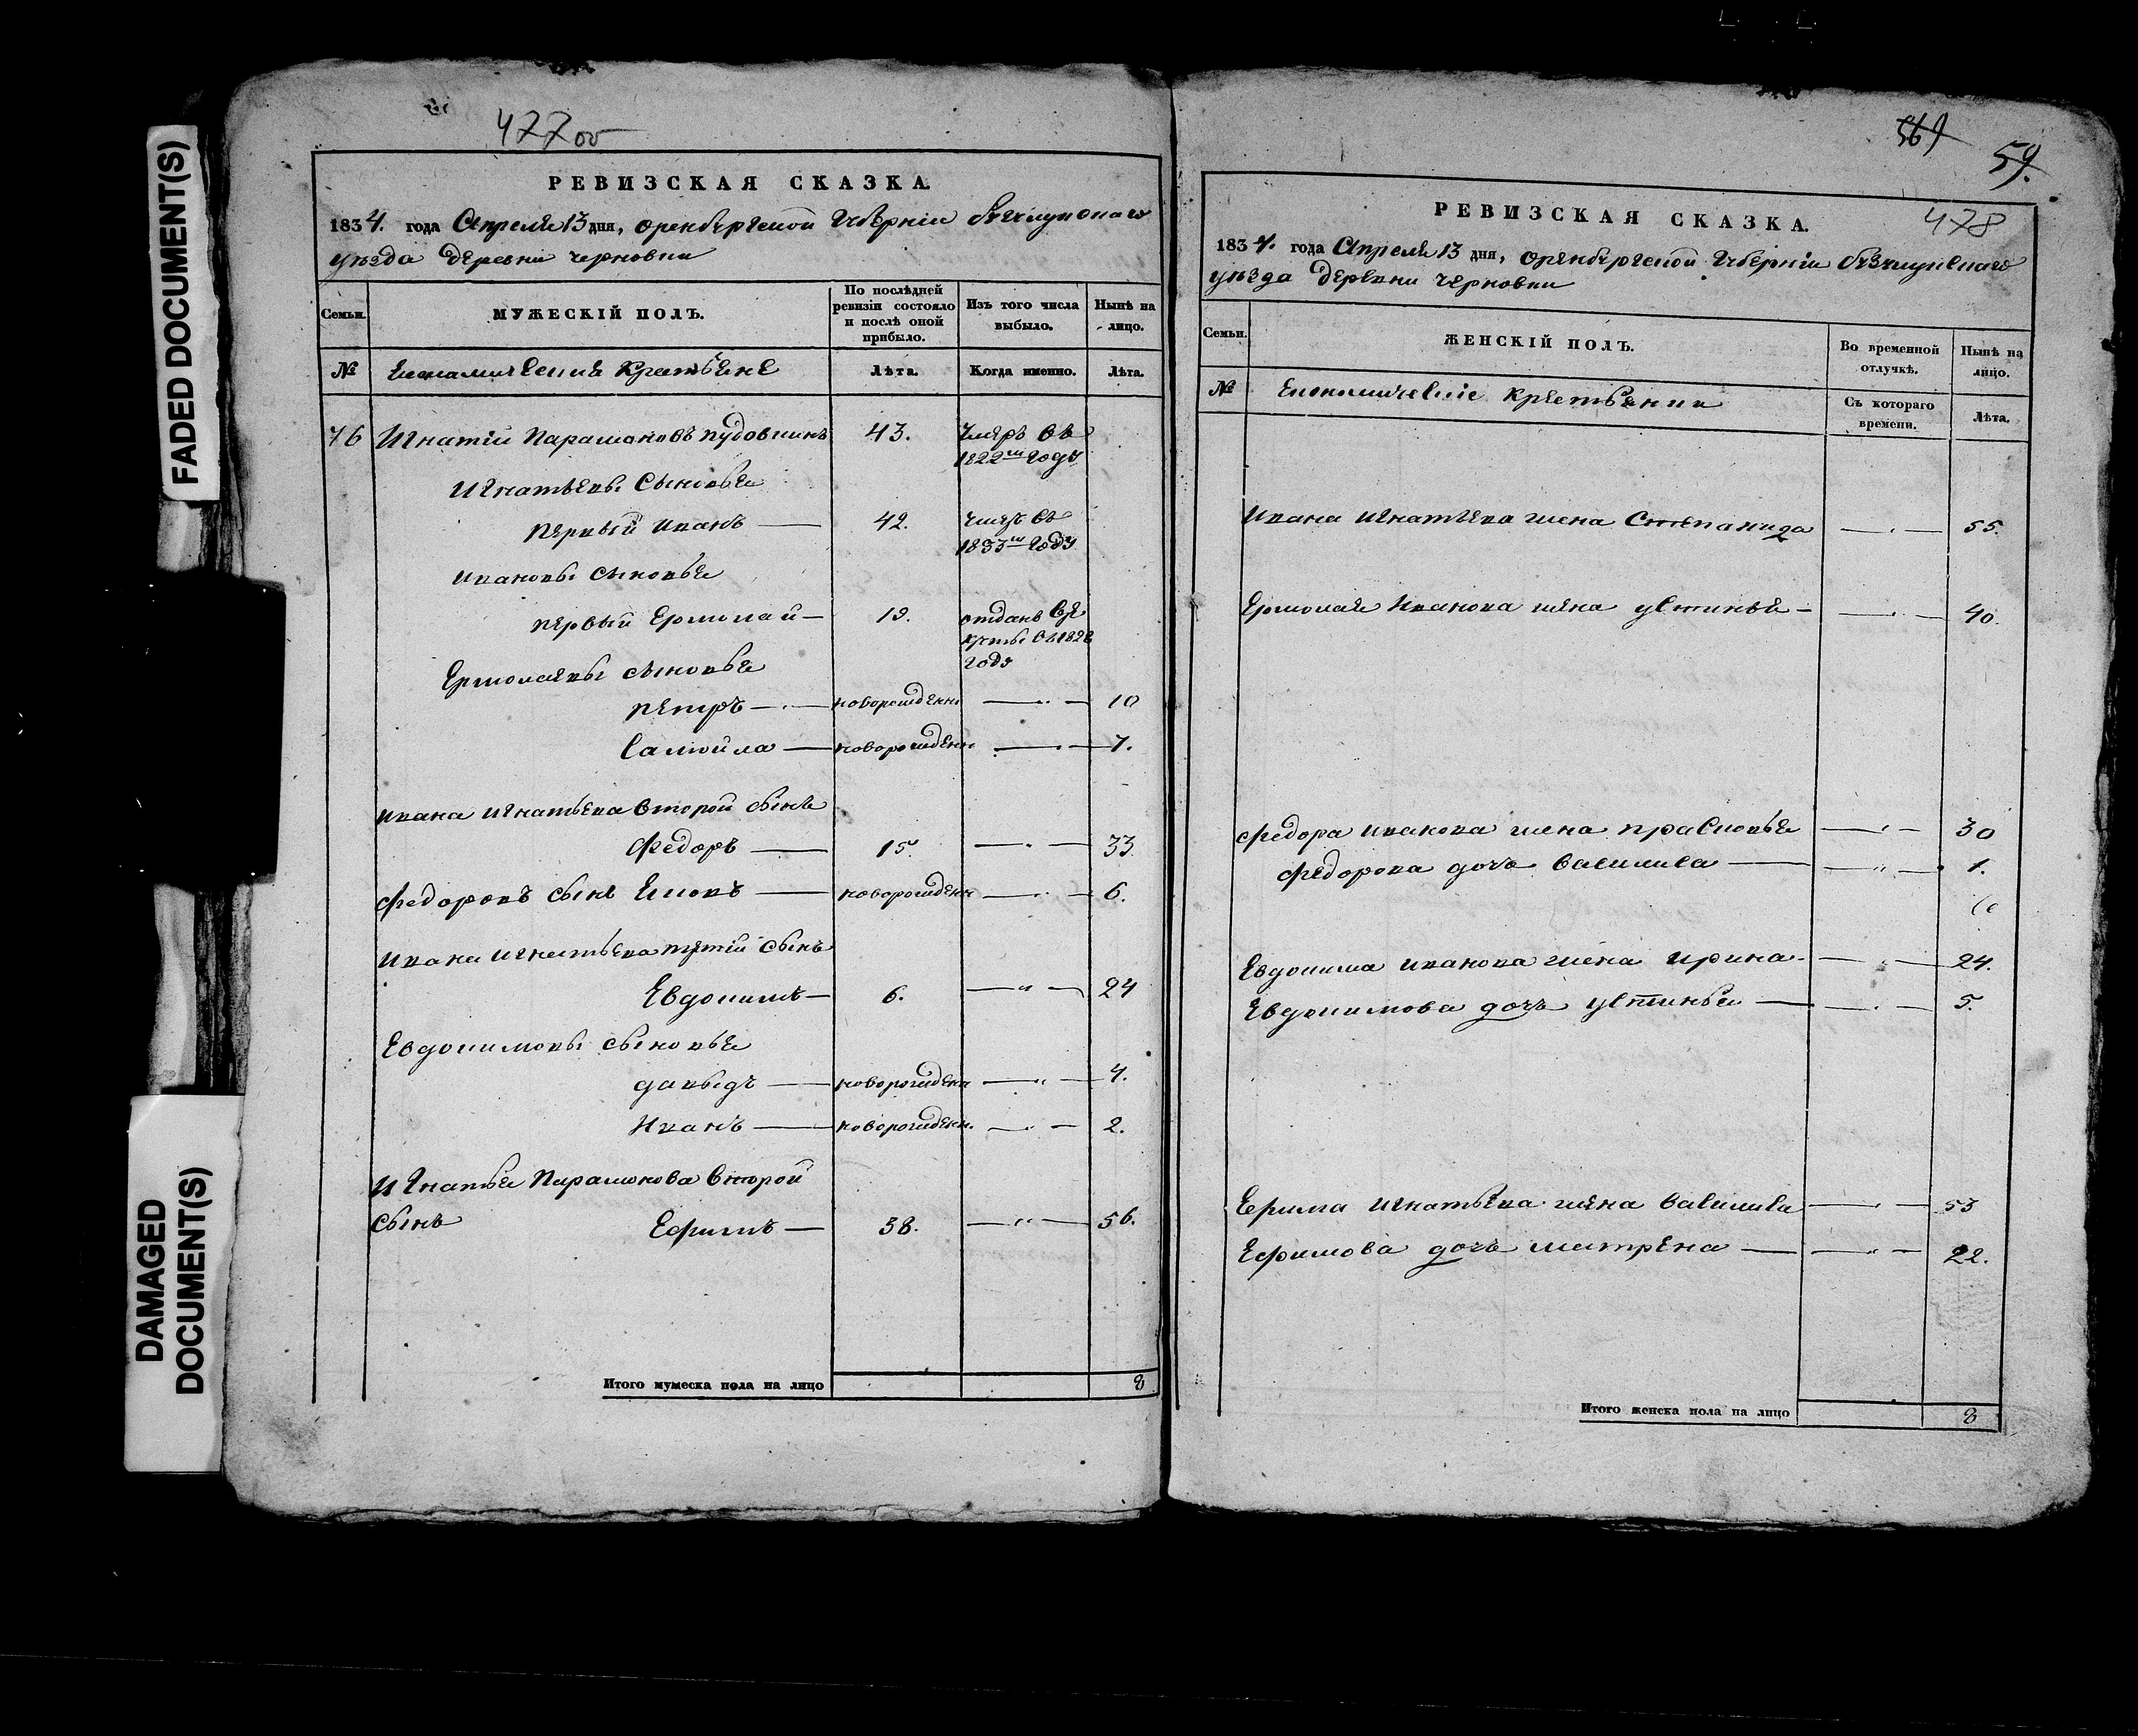 FADED DOCUMENT(S)
DAMAGED
DOCUMENT(S)
477 об
РЕВИЗСКАЯ СКАЗКА.
1834. года Апреля 13 дня, оренбергской Губерніи бузулуцкаго
уѣзда деревни черновки
Семьи.
МУЖЕСКІЙ ПОЛЪ.
По послѣдней ревизіи состояло и послѣ оной прибыло.
Изъ того числа выбыло.
Нынѣ на лицо.
№
Економическия Крестьяне
Лѣта.
Когда именно.
Лѣта.
76 Игнатій Парамоновъ пудовкинъ 43. Умеръ въ
1822м Году
Игнатьевы Сыновья
первый иванъ — 42. Умеръ въ
1833м Году
ивановы сыновья
первый Ермолай — 19. отданъ вре
круты въ 1828
Году
Ермолаевы сыновья
петръ — новорожденн — 10
Самойла — новорожденн — 7.
ивана игнатьева второй сынъ
Федоръ — 15. — 33
Федоровъ сынъ Еmовъ — новорожденн — 6.
ивана игнатьева третій сынъ
Евдокимъ — 6. — 24
Евдокимовы сыновья
давыдъ — новорожденн — 4.
иванъ — новорожденн. — 2.
Игнатья Парамонова второй
сынъ Ефимъ — 38. — 56.
Итого мужеска пола на лицо 8
569
59.
478
РЕВИЗСКАЯ СКАЗКА.
1834. года Апреля 13 дня, оренбергской Губерніи бузулуцкаго
уѣзда деревни черновки
Семьи.
ЖЕНСКІЙ ПОЛЪ.
Во временной отлучкѣ.
Нынѣ на лицо.
№
Економическіе крестьянки
Съ котораго времени.
Лѣта.
ивана игнатьева жена Степанида — 55.
Ермолая Иванова жена устинья — 40.
Федора иванова жена прасковья — 30
Федорова дочь василиса — 1.
Евдокима иванова жена ирина — 24.
Евдокимова дочь устинья — 5.
Ефима игнатьева жена василиса — 53
Ефимова дочь матрена — 22.
Итого женска пола на лицо 8